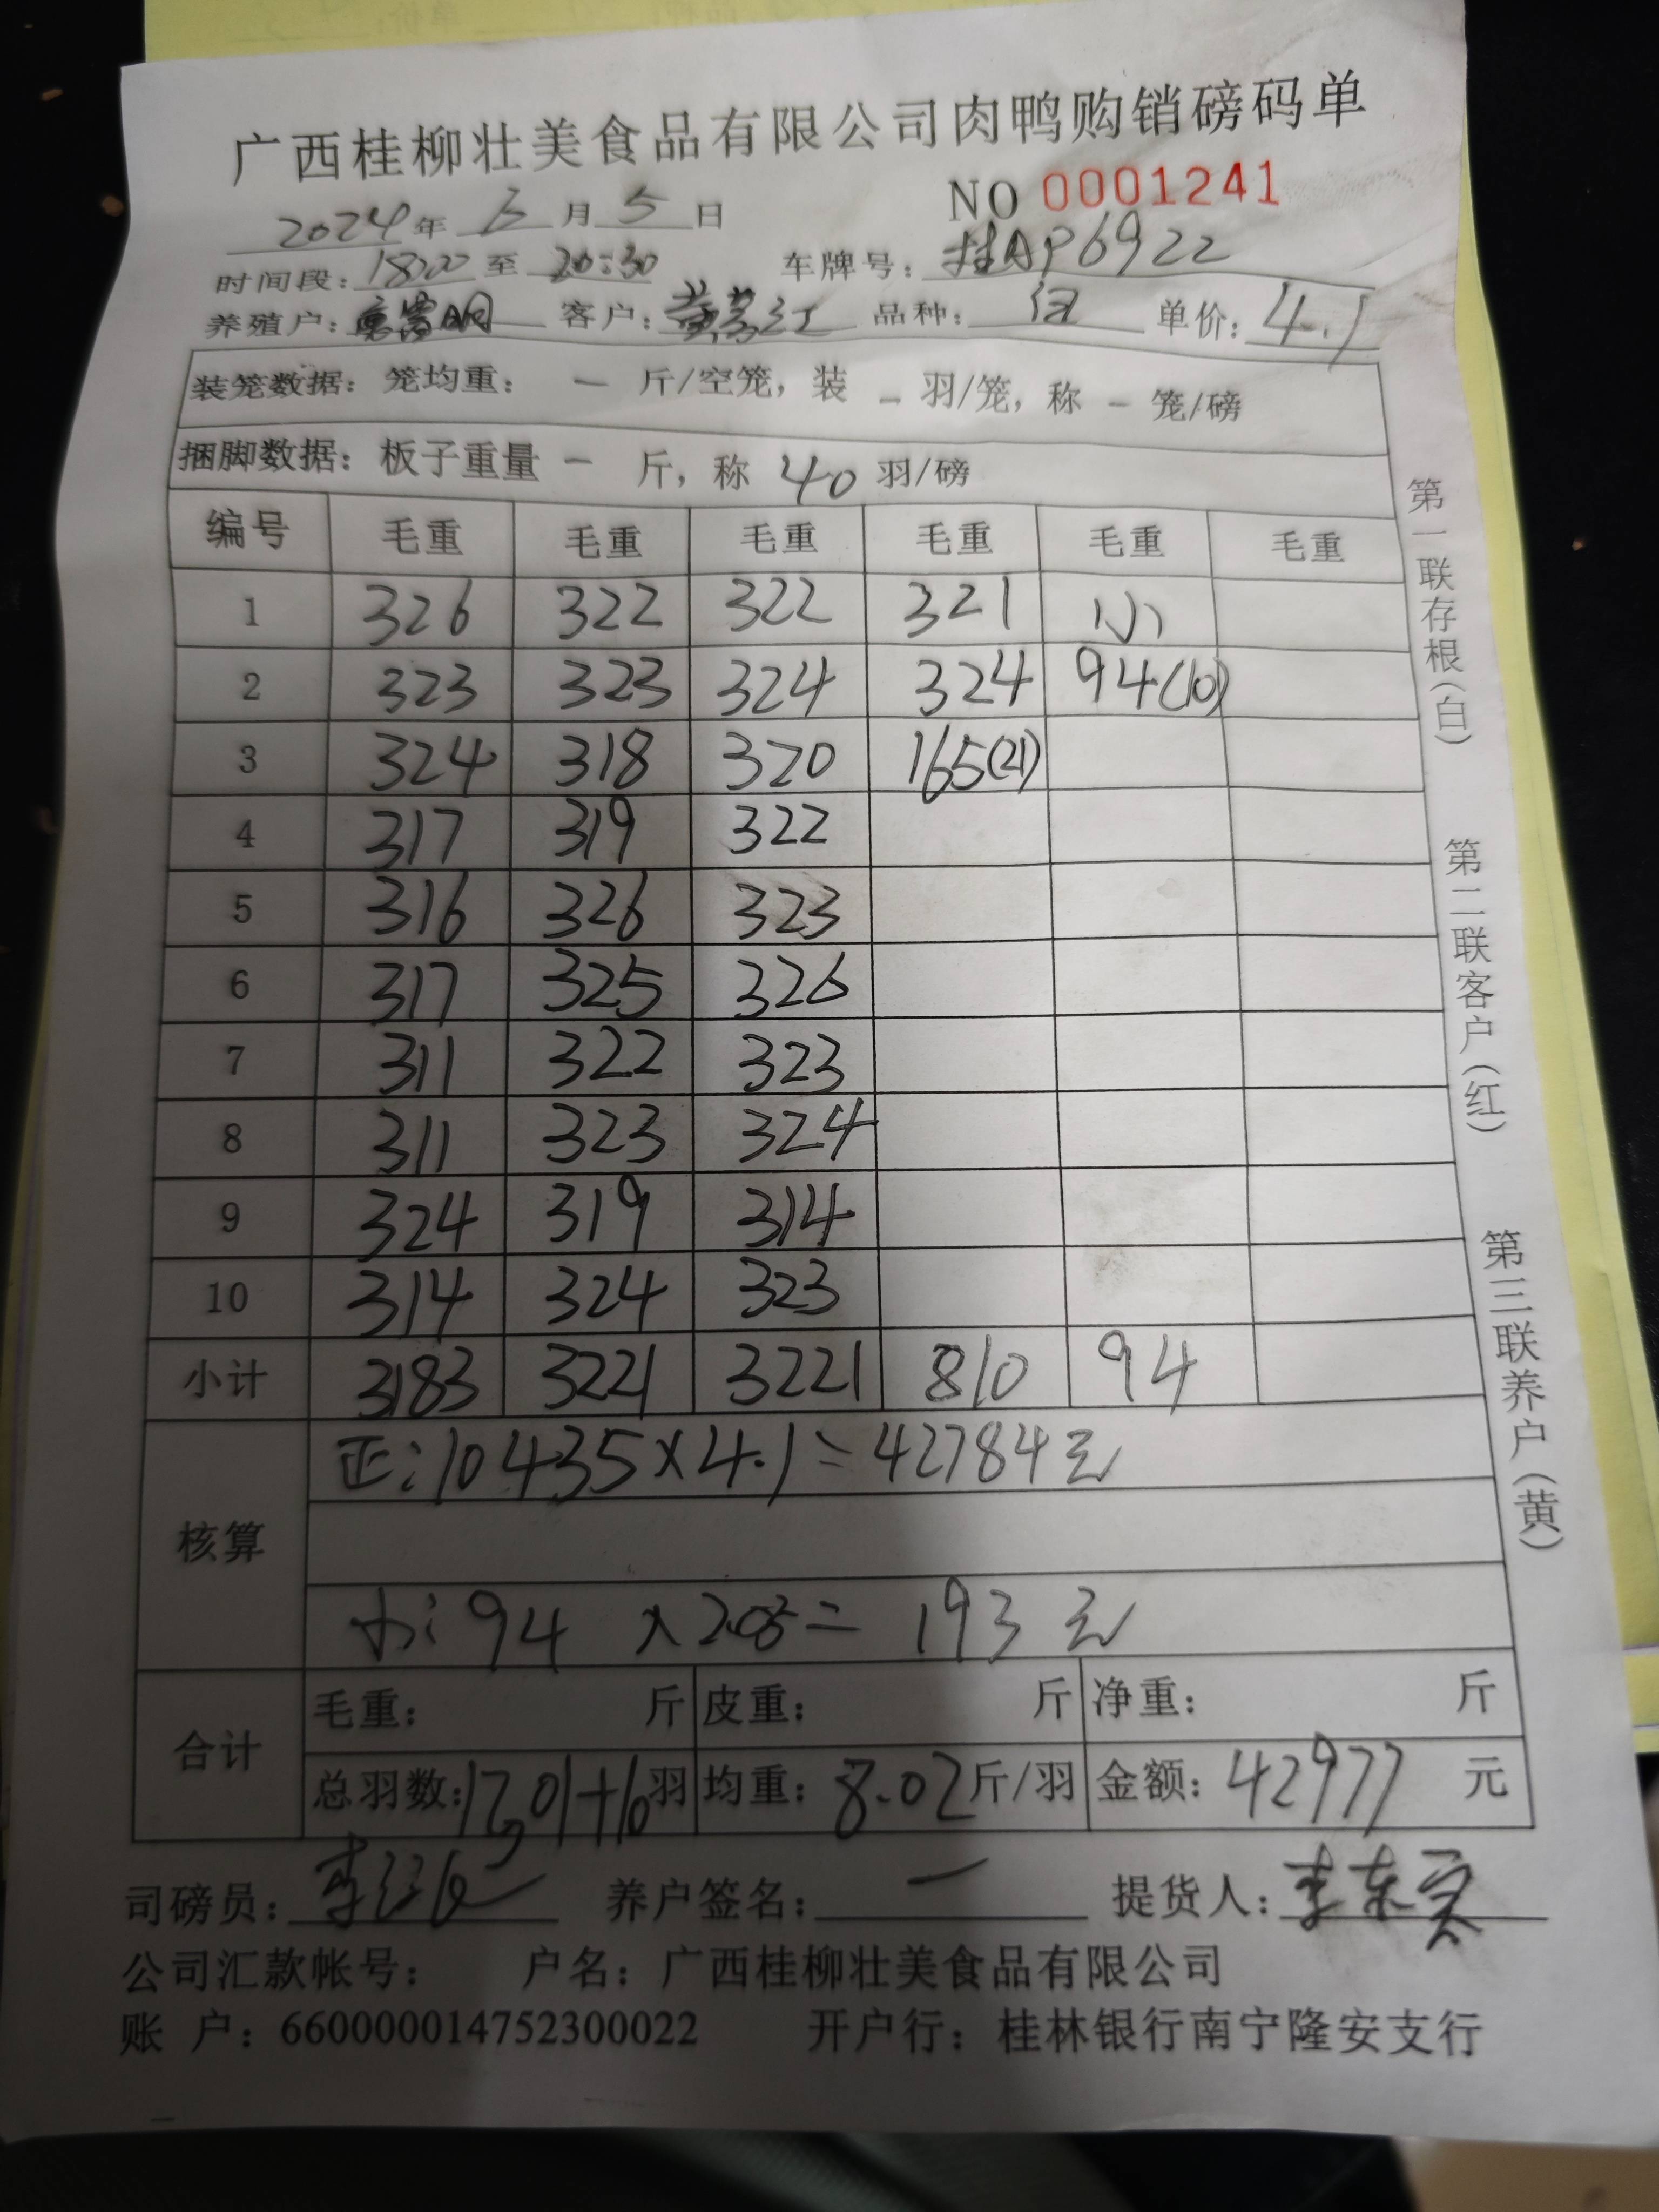 广西桂柳壮美食品有限公司肉鸭购销磅码单
NO 0001241
2024年 月5日
时间段：18:00 至 20:30 车牌号：桂AP6922
养殖户： 客户： 品种： 单价：4.1
装笼数据：笼均重： — 斤/空笼，装 — 羽/笼，称 — 笼/磅
捆脚数据：板子重量 — 斤，称 40 羽/磅
编号 毛重 毛重 毛重 毛重 毛重 毛重
1 326 322 322 321 小
2 323 323 324 324 94(10)
3 324 318 320 165(21)
4 317 319 322
5 316 326 323
6 317 325 326
7 311 322 323
8 311 323 324
9 324 319 314
10 314 324 323
小计 3183 3221 3221 810 94
核算
正：10435×4.1=42784元
小：94 ×2.05= 193元
合计
毛重： 斤 皮重： 斤 净重： 斤
总羽数： 羽 均重：8.02斤/羽 金额：42977 元
司磅员： 养户签名：— 提货人：李东
公司汇款帐号： 户名：广西桂柳壮美食品有限公司
账 户：660000014752300022 开户行：桂林银行南宁隆安支行
第一联存根（白）
第二联客户（红）
第三联养户（黄）